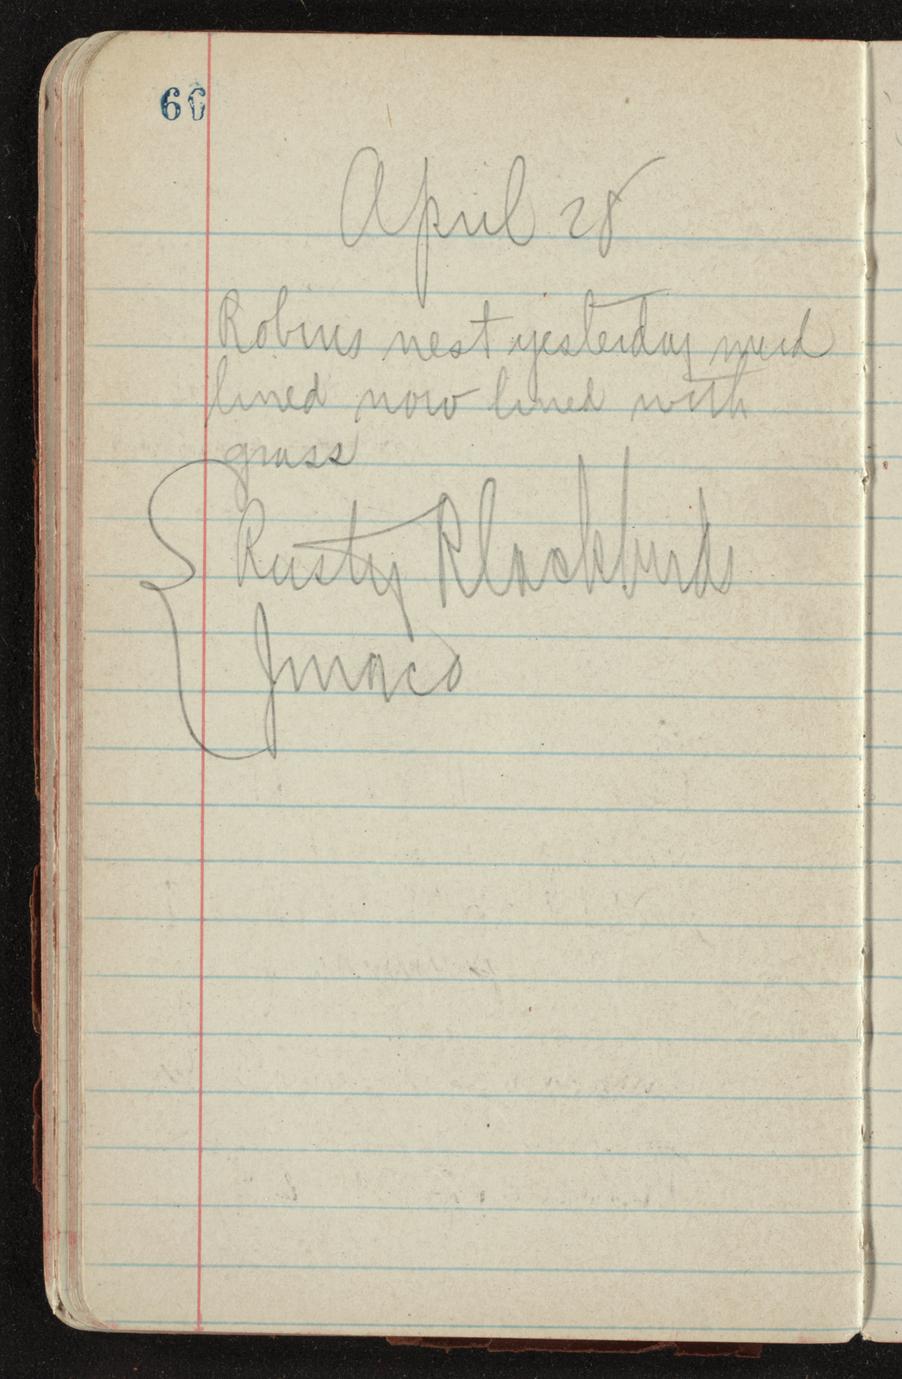 60
April 28
Robins nest yesterday mud
lined now lined with
grass
Rusty Blackbirds
Junco